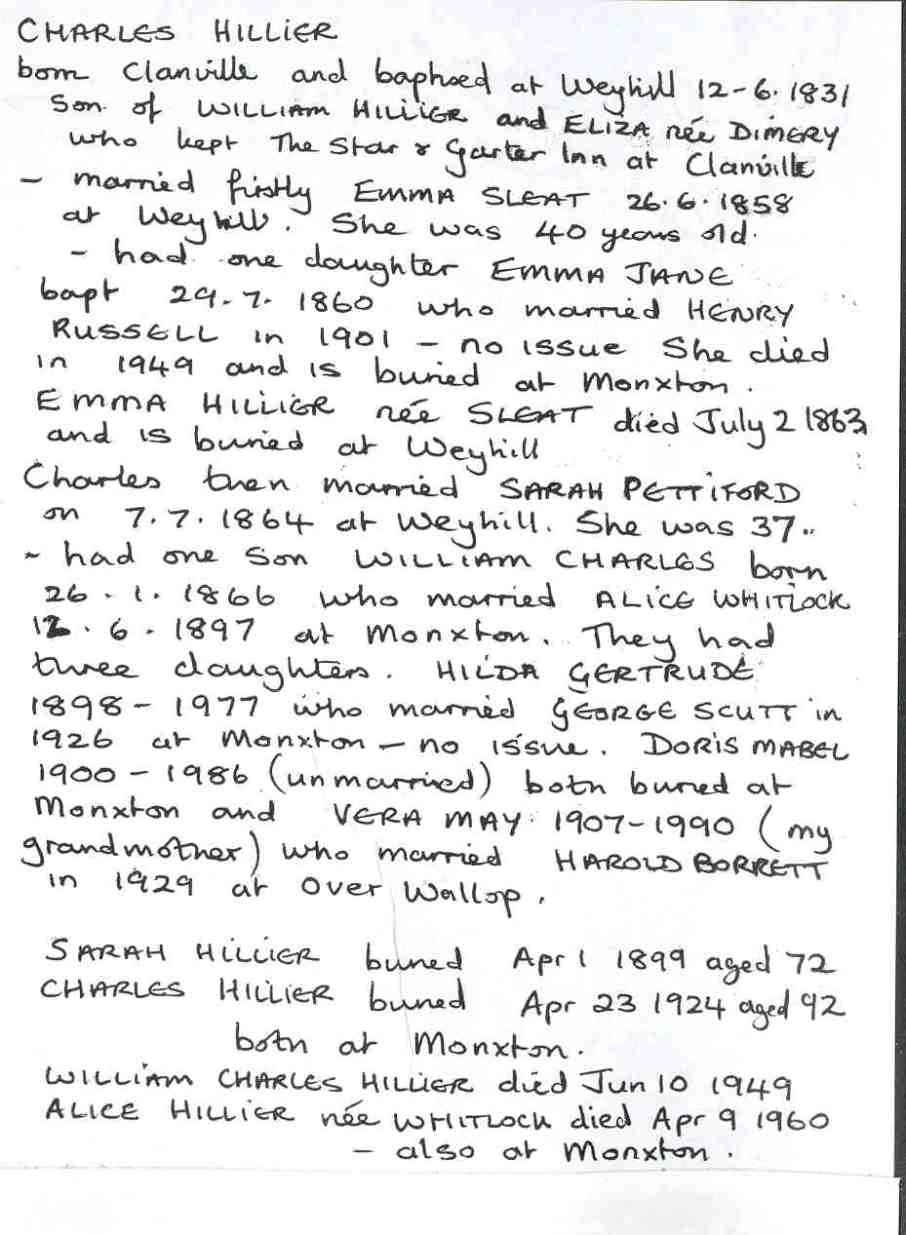 CHARLES HILLIER
born Clanville and baptised at Weyhill 12-6.1831
Son of WILLIAM HILLIER and ELIZA née DIMERY
who kept The Star & Garter Inn at Clanville
- married firstly EMMA SLEAT 26.6.1858
at Weyhill. She was 40 years old.
- had one daughter EMMA JANE
bapt 29.7.1860 who married HENRY
RUSSELL in 1901 - no issue She died
in 1949 and is buried at Monxton.
EMMA HILLIER née SLEAT died July 2 1863
and is buried at Weyhill
Charles then married SARAH PETTIFORD
on 7.7.1864 at Weyhill. She was 37..
~ had one son WILLIAM CHARLES born
26.1.1866 who married ALICE WHITLOCK
12.6.1897 at Monxton. They had
three daughters. HILDA GERTRUDE
1898-1977 who married GEORGE SCUTT in
1926 at Monxton - no issue. DORIS MABEL
1900-1986 (unmarried) both buried at
Monxton and VERA MAY 1907-1990 (my
grandmother) who married HAROLD BORRETT
in 1929 at Over Wallop.
SARAH HILLIER buried Apr 1 1899 aged 72
CHARLES HILLIER buried Apr 23 1924 aged 92
both at Monxton.
WILLIAM CHARLES HILLIER died Jun 10 1949
ALICE HILLIER née WHITLOCK died Apr 9 1960
- also at Monxton.